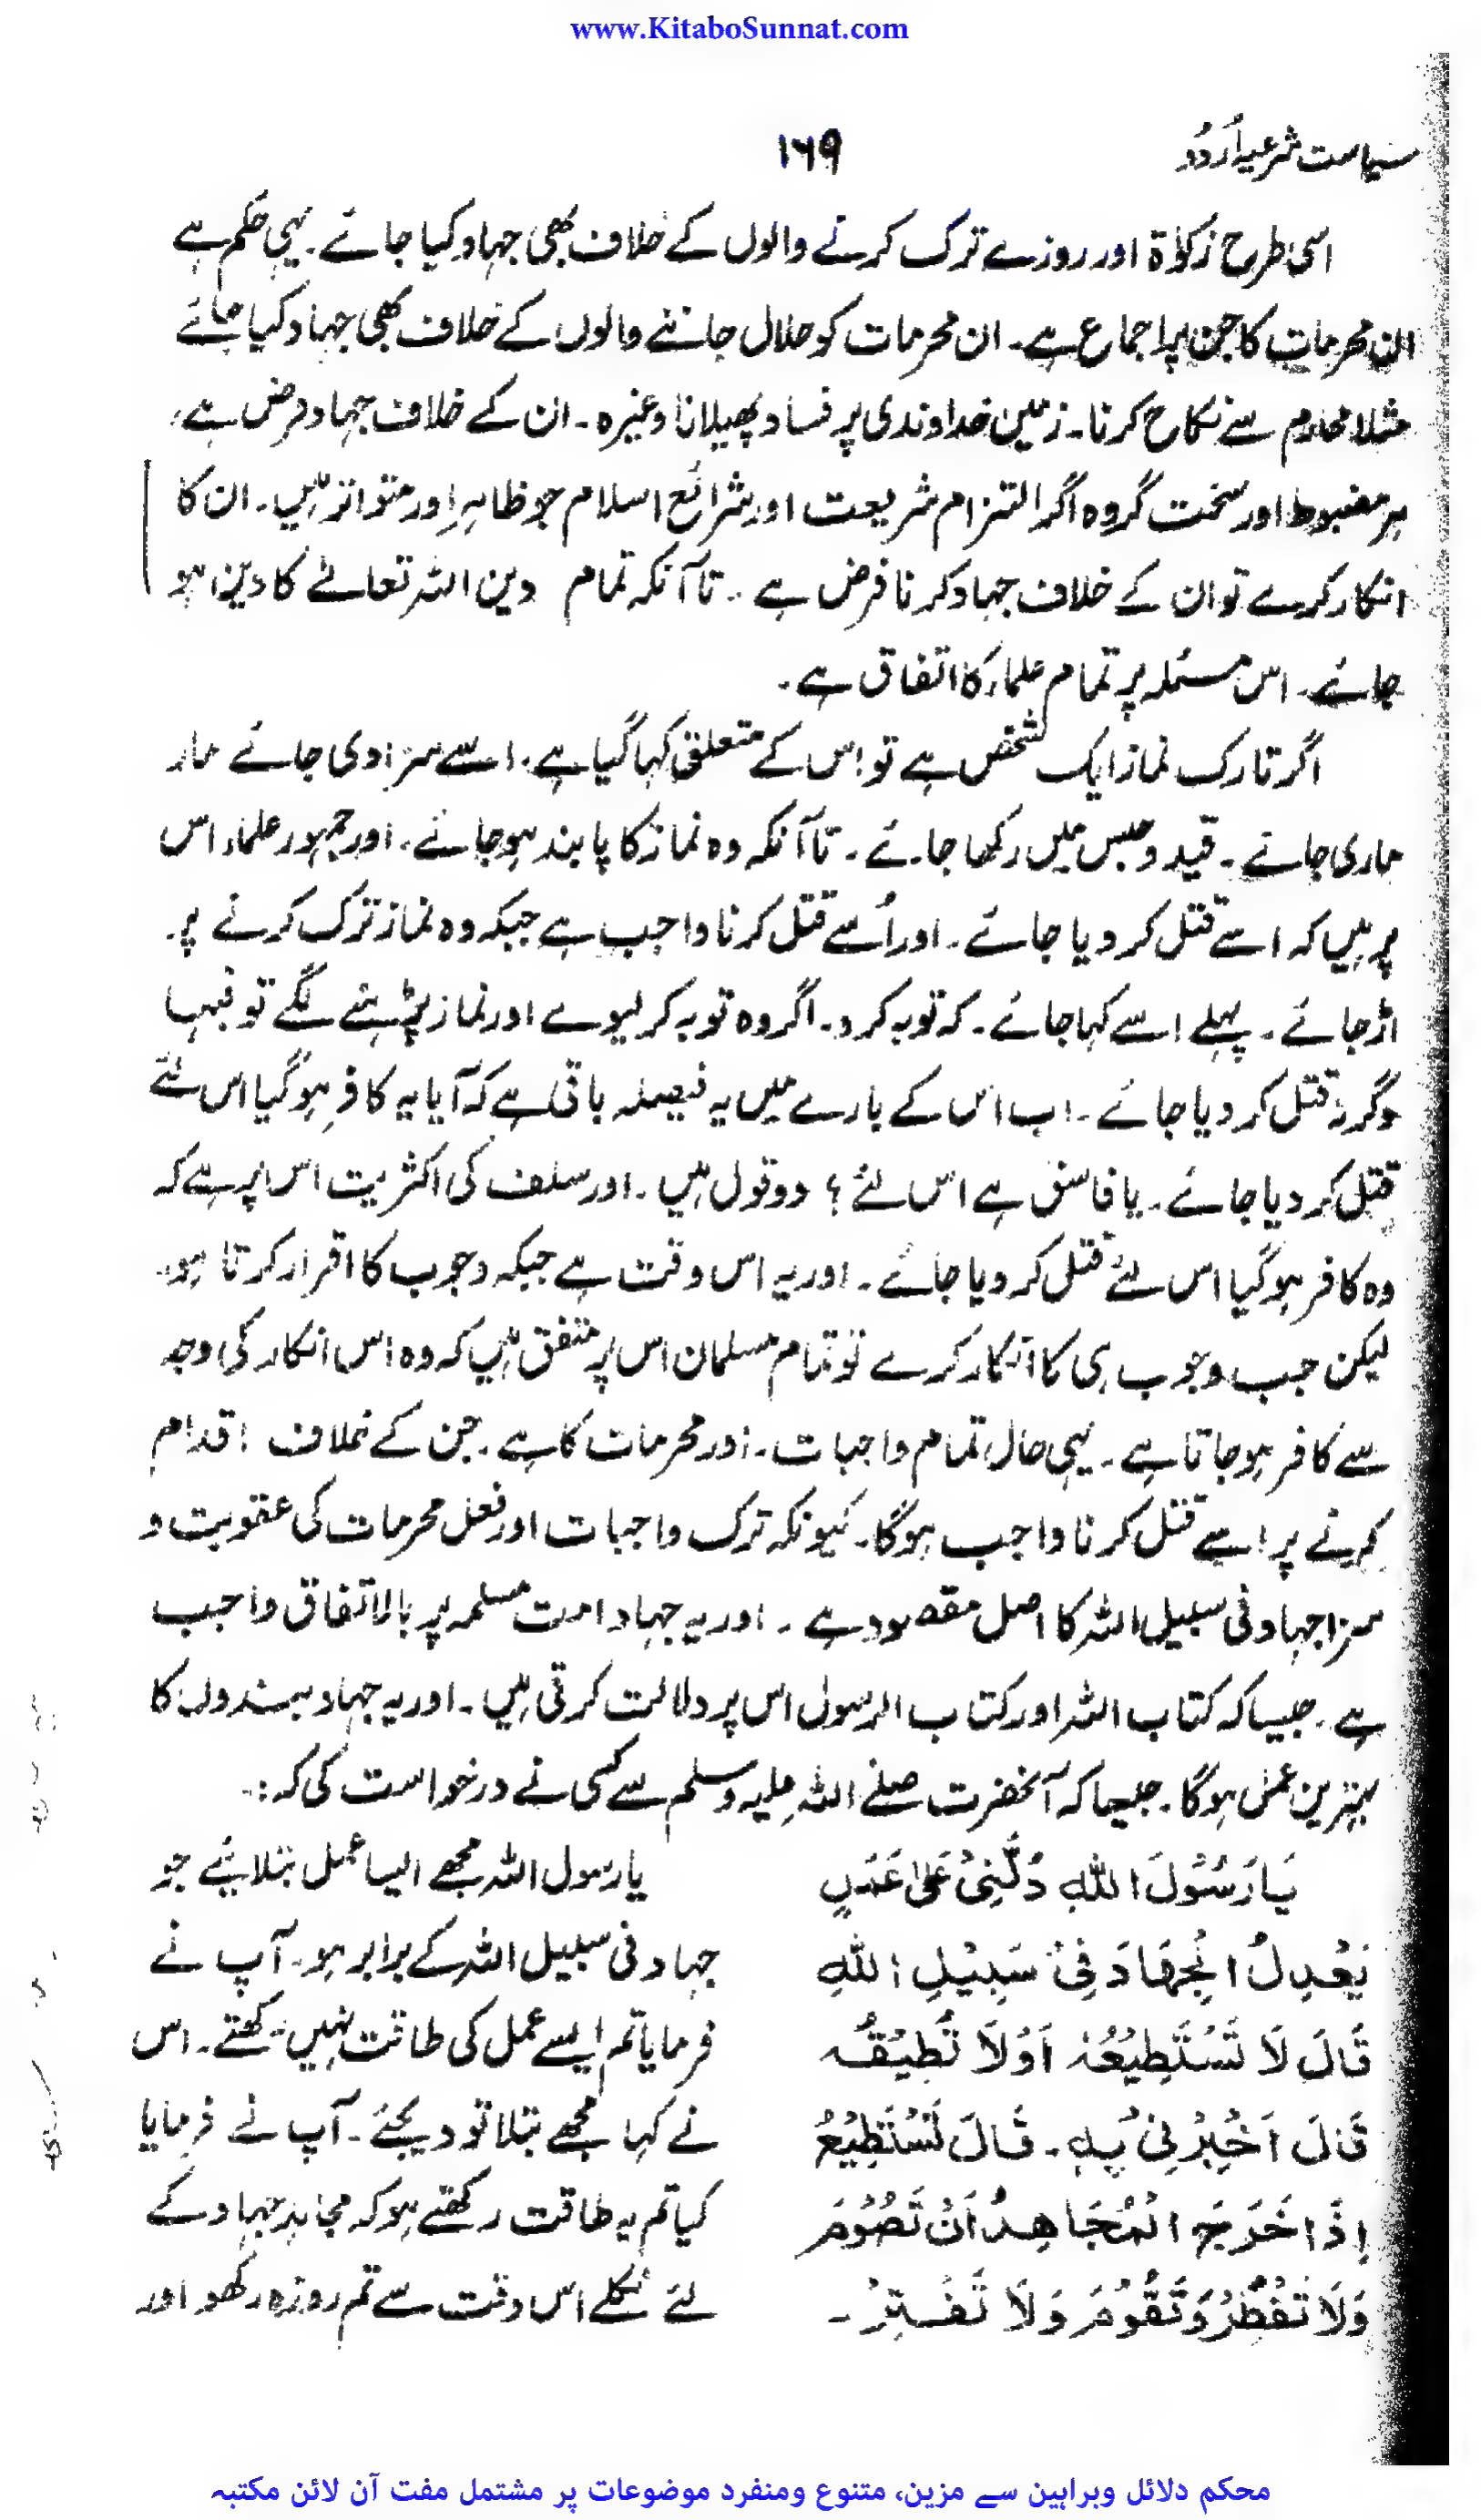 www.KitaboSunnat.com
سیاست شرعیہ اُردُو
۱۶۹
اسی طرح زکوٰۃ اور روزے ترک کرنے والوں کے خلاف بھی جہاد کیا جائے۔ یہی حکم ہے
ان محرمات کا جن پر اجماع ہے۔ ان محرمات کو حلال جاننے والوں کے خلاف بھی جہاد کیا جائے
مثلا محارم سے نکاح کرنا۔ زمین خداوندی پر فساد پھیلانا وغیرہ۔ ان کے خلاف جہاد فرض ہے،
ہر مضبوط اور سخت گروہ اگر التزام شریعت اور شرائع اسلام جو ظاہر اور متواتر ہیں۔ ان کا
انکار کرے تو ان کے خلاف جہاد کرنا فرض ہے۔ تا آنکہ تمام دین اللہ تعالےٰ کا دین ہو
جائے۔ اس مسئلہ پر تمام علماء کا اتفاق ہے۔
اگر تارک نماز ایک شخص ہے تو اس کے متعلق کہا گیا ہے۔ اسے سزا دی جائے مار
ماری جائے۔ قید و حبس میں رکھا جائے۔ تا آنکہ وہ نماز کا پابند ہو جائے۔ اور جمہور علماء اس
پر ہیں کہ اسے قتل کر دیا جائے۔ اور اُسے قتل کرنا واجب ہے جبکہ وہ نماز ترک کرنے پر
اڑ جائے۔ پہلے اسے کہا جائے۔ کہ توبہ کرو۔ اگر وہ توبہ کر لیوے اور نماز پڑہنے لگے تو فبہا
وگرنہ قتل کر دیا جائے۔ اب اس کے بارے میں یہ فیصلہ باقی ہے کہ آیا یہ کافر ہو گیا اس لئے
قتل کر دیا جائے۔ یا فاسق ہے اس لئے؟ دو قول ہیں۔ اور سلف کی اکثریت اس پر ہے کہ
وہ کافر ہو گیا اس لئے قتل کر دیا جائے۔ اور یہ اس وقت ہے جبکہ وجوب کا اقرار کرتا ہو۔
لیکن جب وجوب ہی کا انکار کرے تو تمام مسلمان اس پر متفق ہیں کہ وہ اس انکار کی وجہ
سے کافر ہو جاتا ہے۔ یہی حال تمام واجبات۔ اور محرمات کا ہے۔ جن کے خلاف اقدام
کرنے پر اسے قتل کرنا واجب ہوگا۔ کیونکہ ترک واجبات اور فعل محرمات کی عقوبت و
سزا جہاد فی سبیل اللہ کا اصل مقصود ہے۔ اور یہ جہاد امت مسلمہ پر بالاتفاق واجب
ہے۔ جیسا کہ کتاب اللہ اور کتاب الرسول اس پر دلالت کرتی ہیں۔ اور یہ جہاد بندوں کا
بہترین عمل ہوگا۔ جیسا کہ آنحضرت صلے اللہ علیہ وسلم سے کسی نے درخواست کی کہ:۔
یَا رَسُوْلَ اللهِ دُلَّنِیْ عَلیٰ عَمَلٍ
یَعْدِلُ الْجِهَادَ فِیْ سَبِیْلِ اللهِ
قَالَ لَا تَسْتَطِیْعُهٗ اَوْ لَا تُطِیْقُهٗ
قَالَ اَخْبِرْنِیْ بِهٖ۔ قَالَ تَسْتَطِیْعُ
اِذَا خَرَجَ الْمُجَاهِدُ اَنْ تَصُوْمَ
وَلَا تُفْطِرُ وَ تَقُوْمَ وَلَا تَفْتُرُ۔
یا رسول اللہ مجھے ایسا عمل بتلائیے جو
جہاد فی سبیل اللہ کے برابر ہو۔ آپ نے
فرمایا تم ایسے عمل کی طاقت نہیں رکھتے۔ اس
نے کہا مجھے بتلا تو دیجئے۔ آپ نے فرمایا
کیا تم یہ طاقت رکھتے ہو کہ مجاہد جہاد کے
لئے نکلے اس وقت سے تم روزہ رکھو اور
محکم دلائل وبراہین سے مزین، متنوع ومنفرد موضوعات پر مشتمل مفت آن لائن مکتبہ